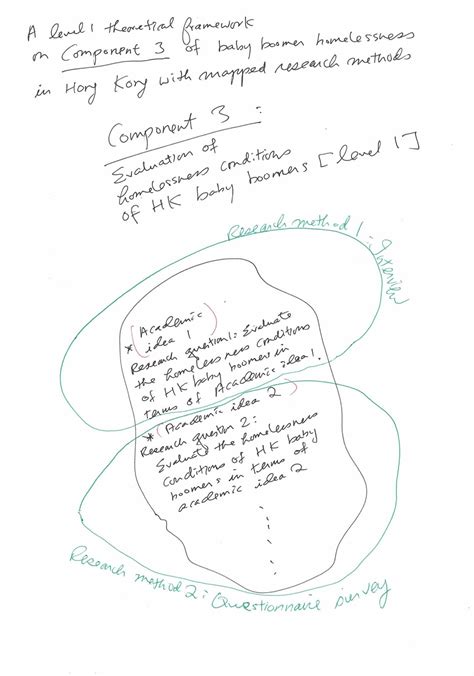 A level 1 theoretical framework
on Component 3 of baby boomer homelessness
in Hong Kong with mapped research methods
Component 3 :
Evaluation of
homelessness conditions
of HK baby boomers [level 1]
Research method 1 : Interview
* (Academic
idea 1)
Research question 1: Evaluate
the homelessness conditions
of HK baby boomers in
terms of Academic idea 1.
* (Academic idea 2)
Research question 2:
Evaluate the homelessness
conditions of HK baby
boomers in terms of
academic idea 2
Research method 2 : Questionnaire survey